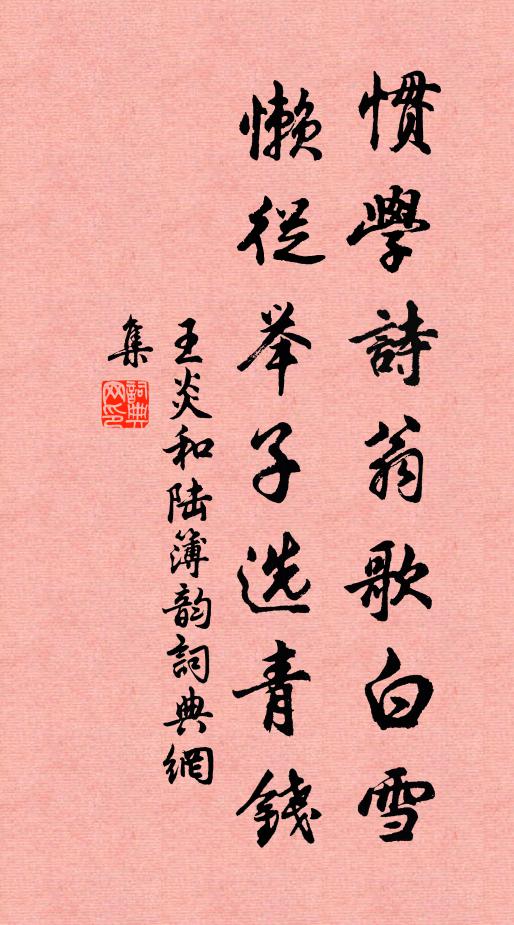 慣學詩翁歌白雪
懶從举子选青錢
王炎和陆簿韵詞典網
集
詞典
网印